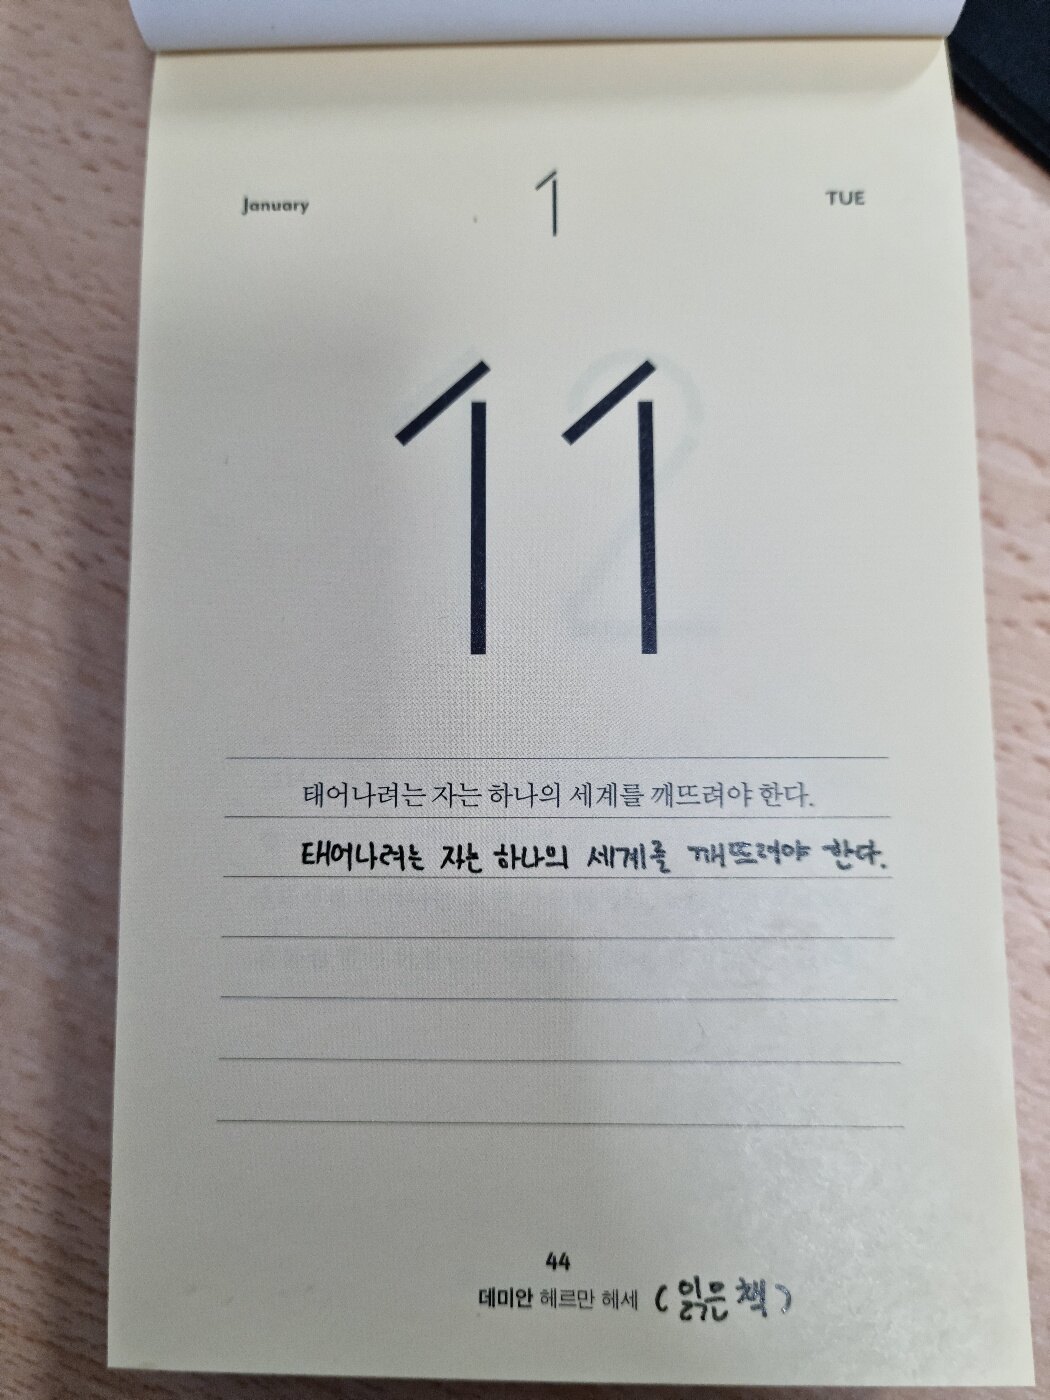 January 1 TUE
11
태어나려는 자는 하나의 세계를 깨뜨려야 한다.
태어나려는 자는 하나의 세계를 깨뜨려야 한다.
44
데미안 헤르만 헤세 (읽은 책)